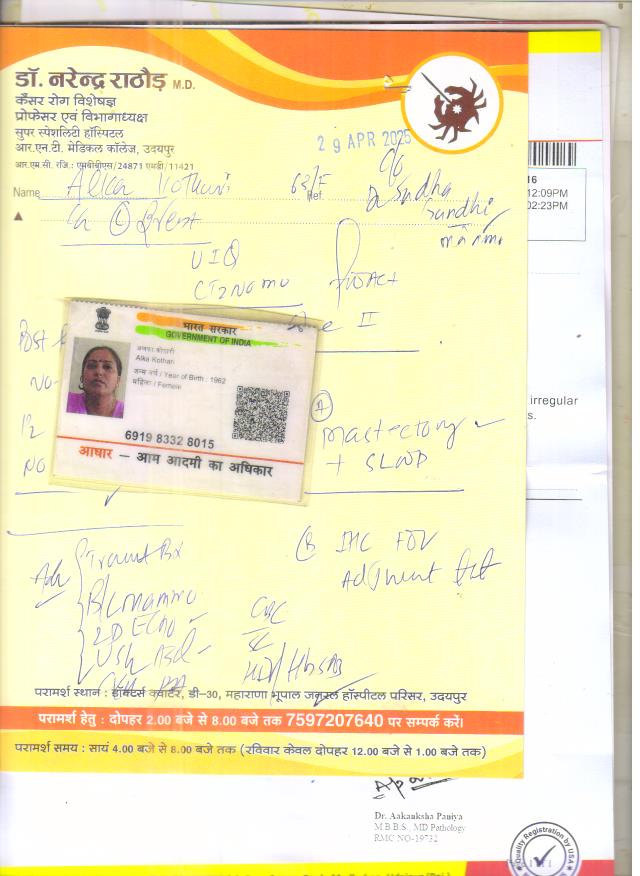 डॉ. नरेन्द्र राठौड़ M.D.
कैंसर रोग विशेषज्ञ
प्रोफेसर एवं विभागाध्यक्ष
सुपर स्पेशलिटी हॉस्पिटल
आर.एन.टी. मेडिकल कॉलेज, उदयपुर
आर.एम.सी. रजि.: एमबीबीएस/24871 एमडी/11421
29 APR 2025
16
12:09PM
02:23PM
Name Alka Kothari 63/F Ref. c/o
Dr Sudha
Gandhi
Ca (L) Breast
UIQ
CT2N0M0
II
Post
NO
भारत सरकार
GOVERNMENT OF INDIA
अलका कोठारी
Alka Kothari
जन्म वर्ष / Year of Birth : 1962
महिला / Female
6919 8332 8015
आधार – आम आदमी का अधिकार
irregular
s.
(A) Mastectomy
+ SLNB
NO
Adv Trucut Bx
B/L mammo
2D Echo
USG Abd
CBC
HIV/HbsAg
(B) IHC FOR
Adjuvant
परामर्श स्थान : डॉक्टर्स क्वार्टर, डी-30, महाराणा भूपाल जनरल हॉस्पिटल परिसर, उदयपुर
परामर्श हेतु : दोपहर 2.00 बजे से 8.00 बजे तक 7597207640 पर सम्पर्क करें।
परामर्श समय : सायं 4.00 बजे से 8.00 बजे तक (रविवार केवल दोपहर 12.00 बजे से 1.00 बजे तक)
Dr. Aakanksha Paniya
M.B.B.S., MD Pathology
RMC NO-19732
Quality Registration by USA